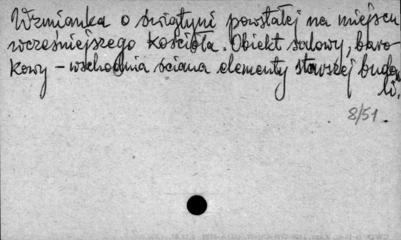 Wzmianka o świątyni powstałej na miejscu
wcześniejszego kościoła. Obiekt salowy, baro-
kowy - wschodnia ściana elementy starszej budow
li.
8/51.